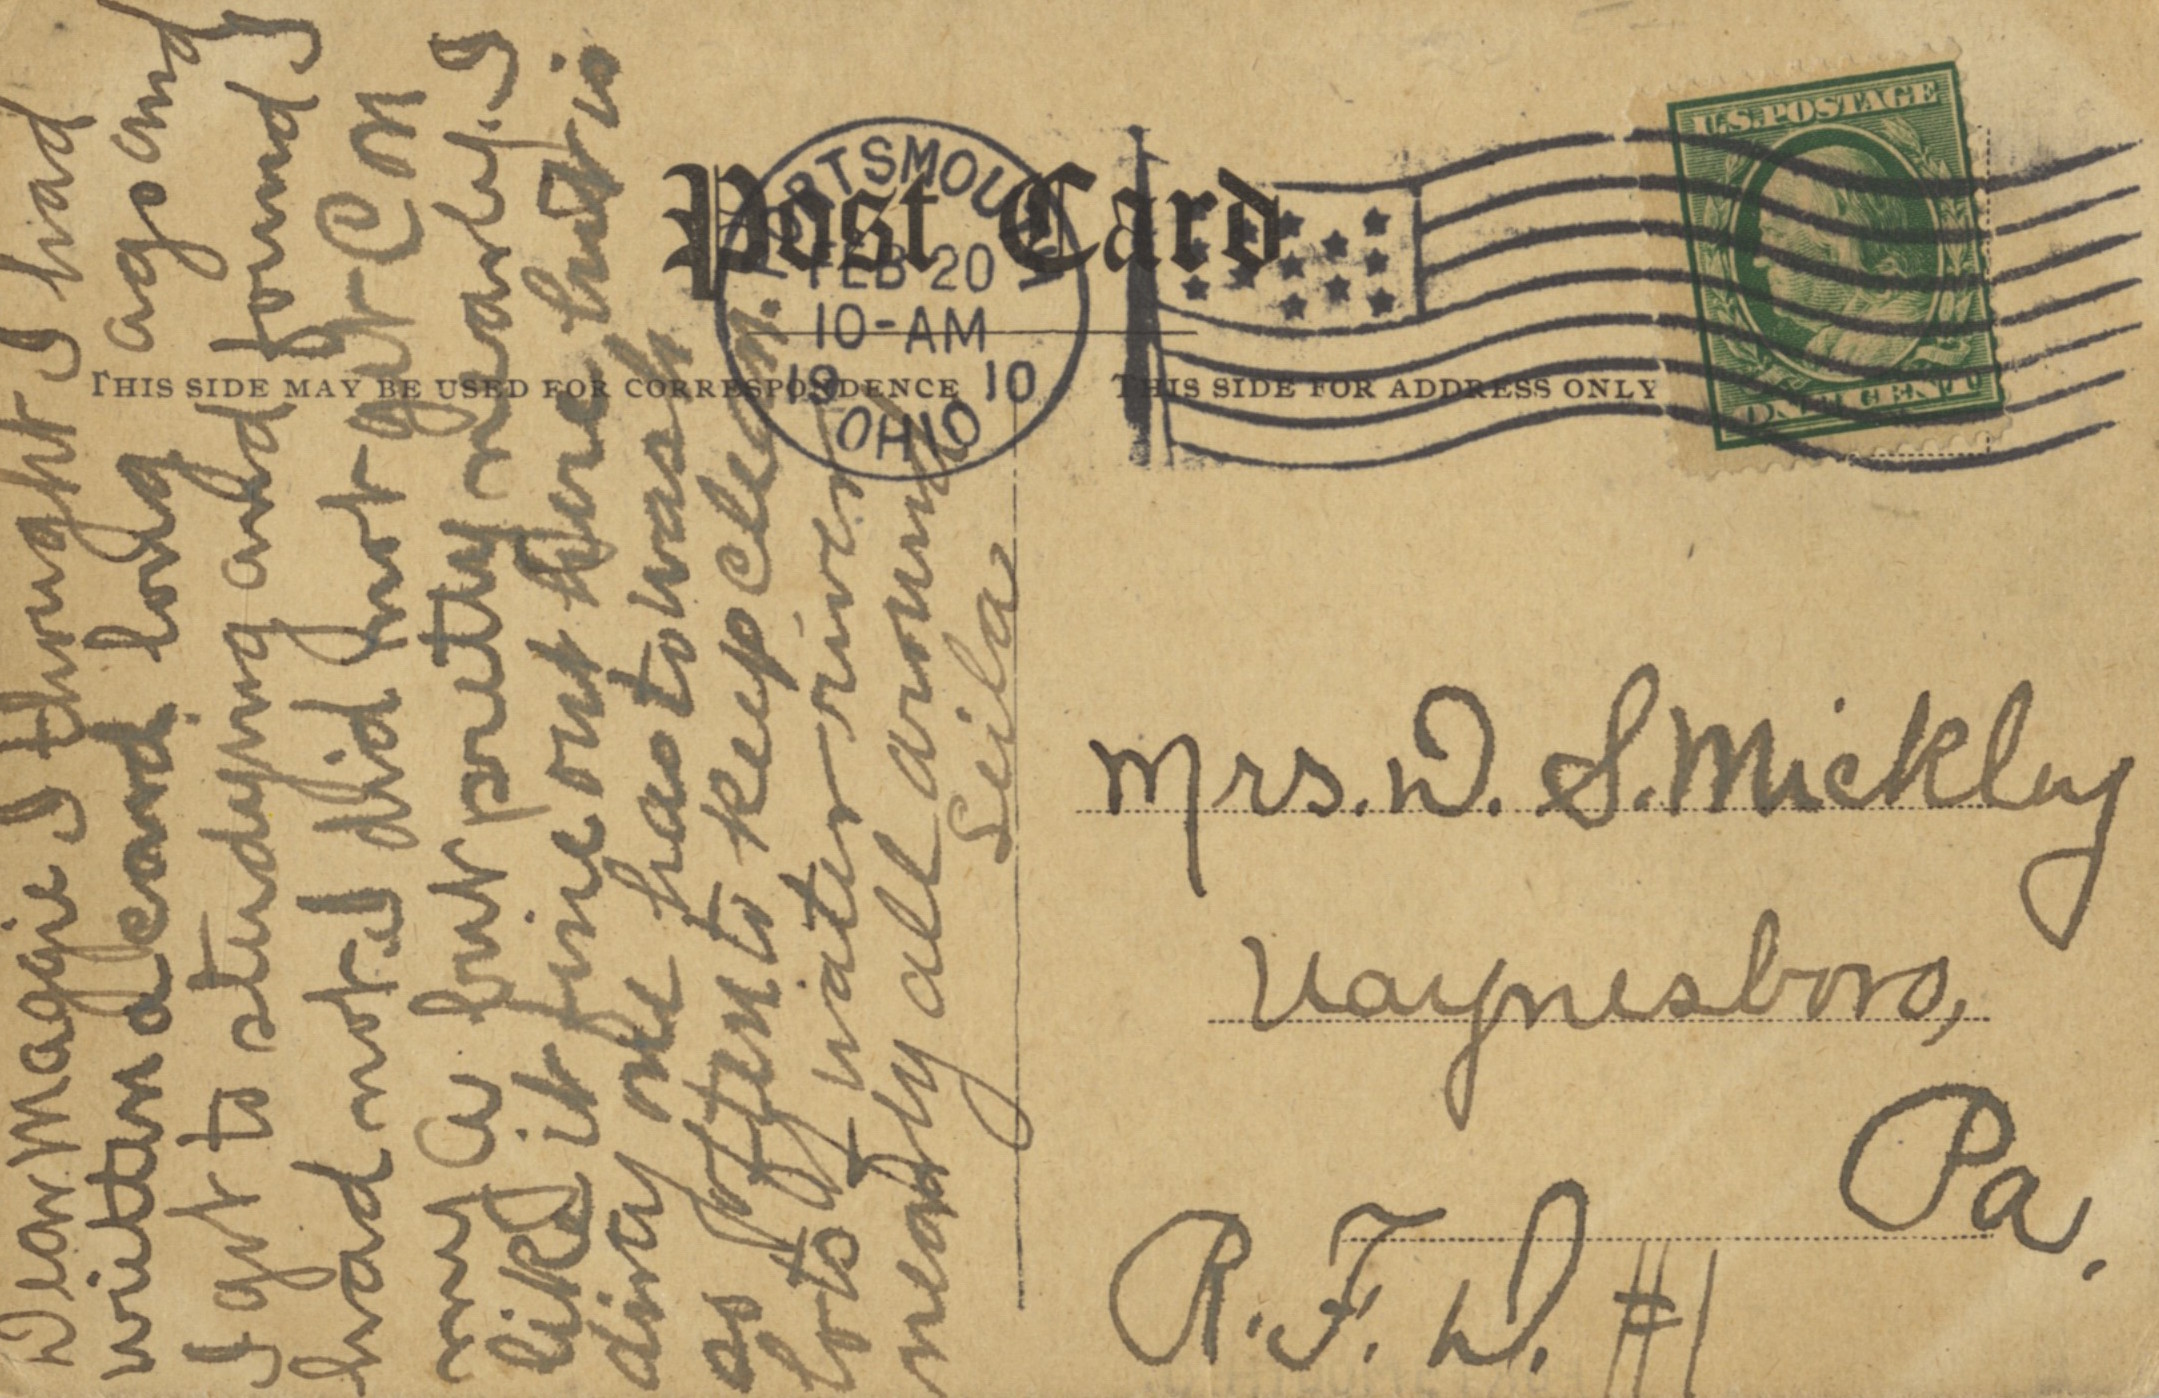 Post Card
THIS SIDE MAY BE USED FOR CORRESPONDENCE
THIS SIDE FOR ADDRESS ONLY
PORTSMOUTH
FEB 20
10-AM
1910
OHIO
U.S. POSTAGE
Dear Maggie I thought I had
written a card long ago and
I got to studying and found I
had not. I did not get Con
my A but pretty nearly. I
like it fine out here but is
dirty one has to wash
so often to keep clean.
lots water river
nearly all around
Leila
Mrs. D. S. Mickley
Waynesboro,
Pa.
R. F. D. #1